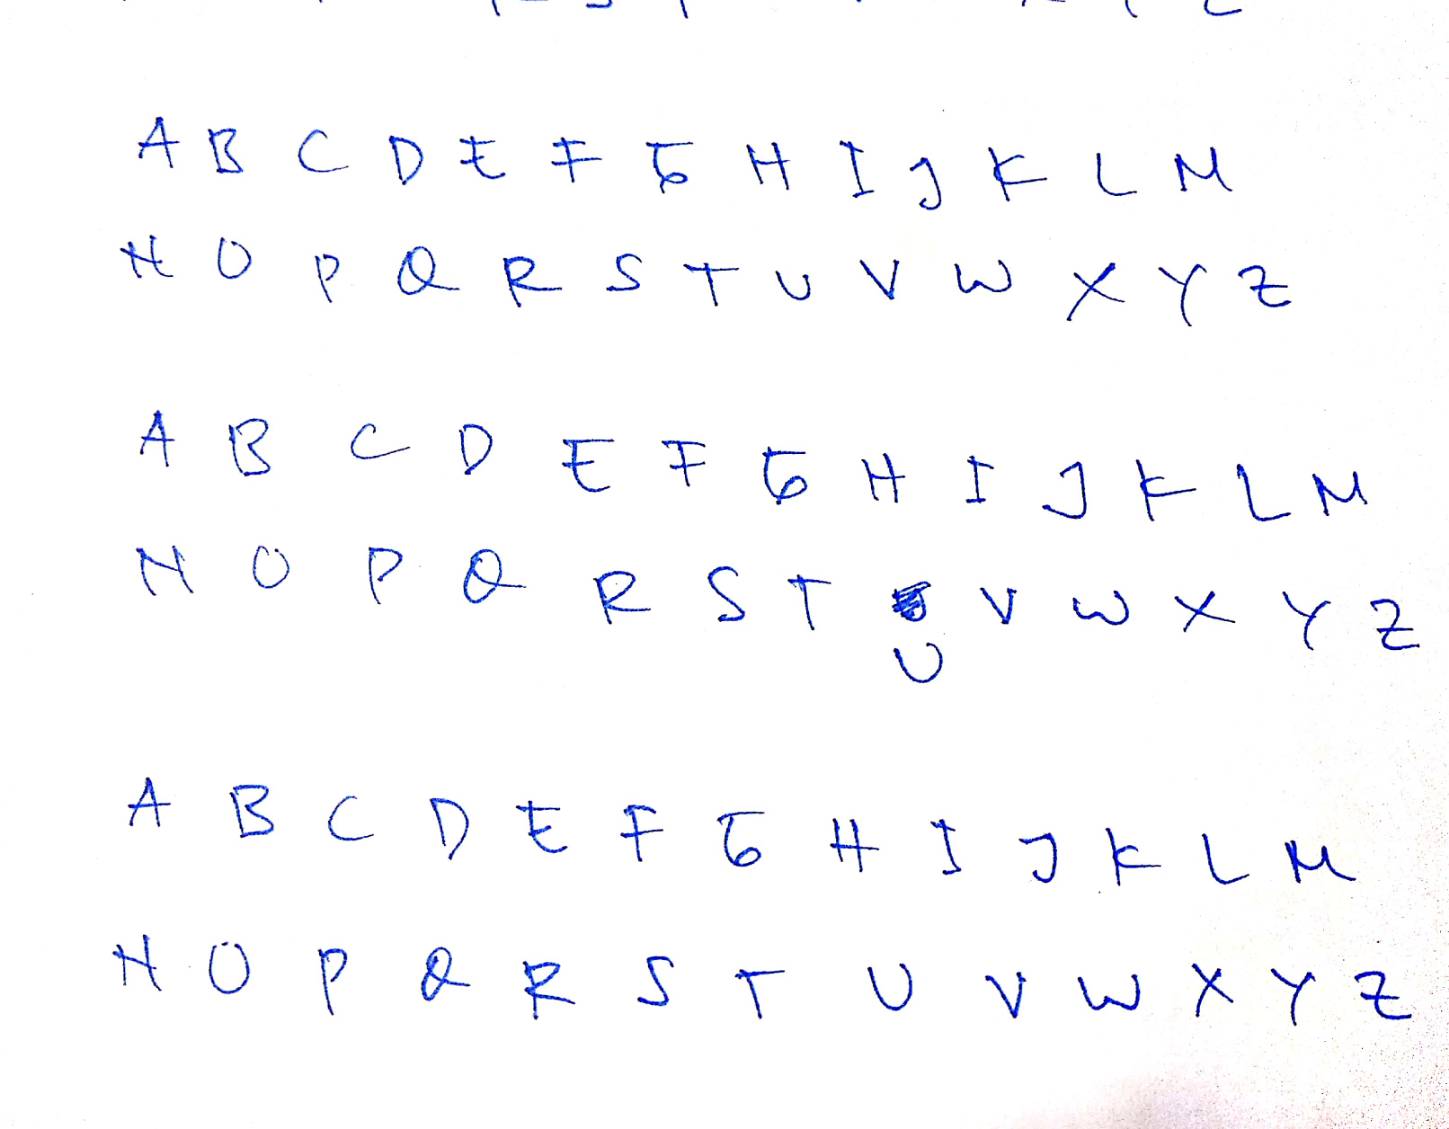 A B C D E F G H I J K L M
N O P Q R S T U V W X Y Z
A B C D E F G H I J K L M
N O P Q R S T V W X Y Z
U
A B C D E F G H I J K L M
N O P Q R S T U V W X Y Z